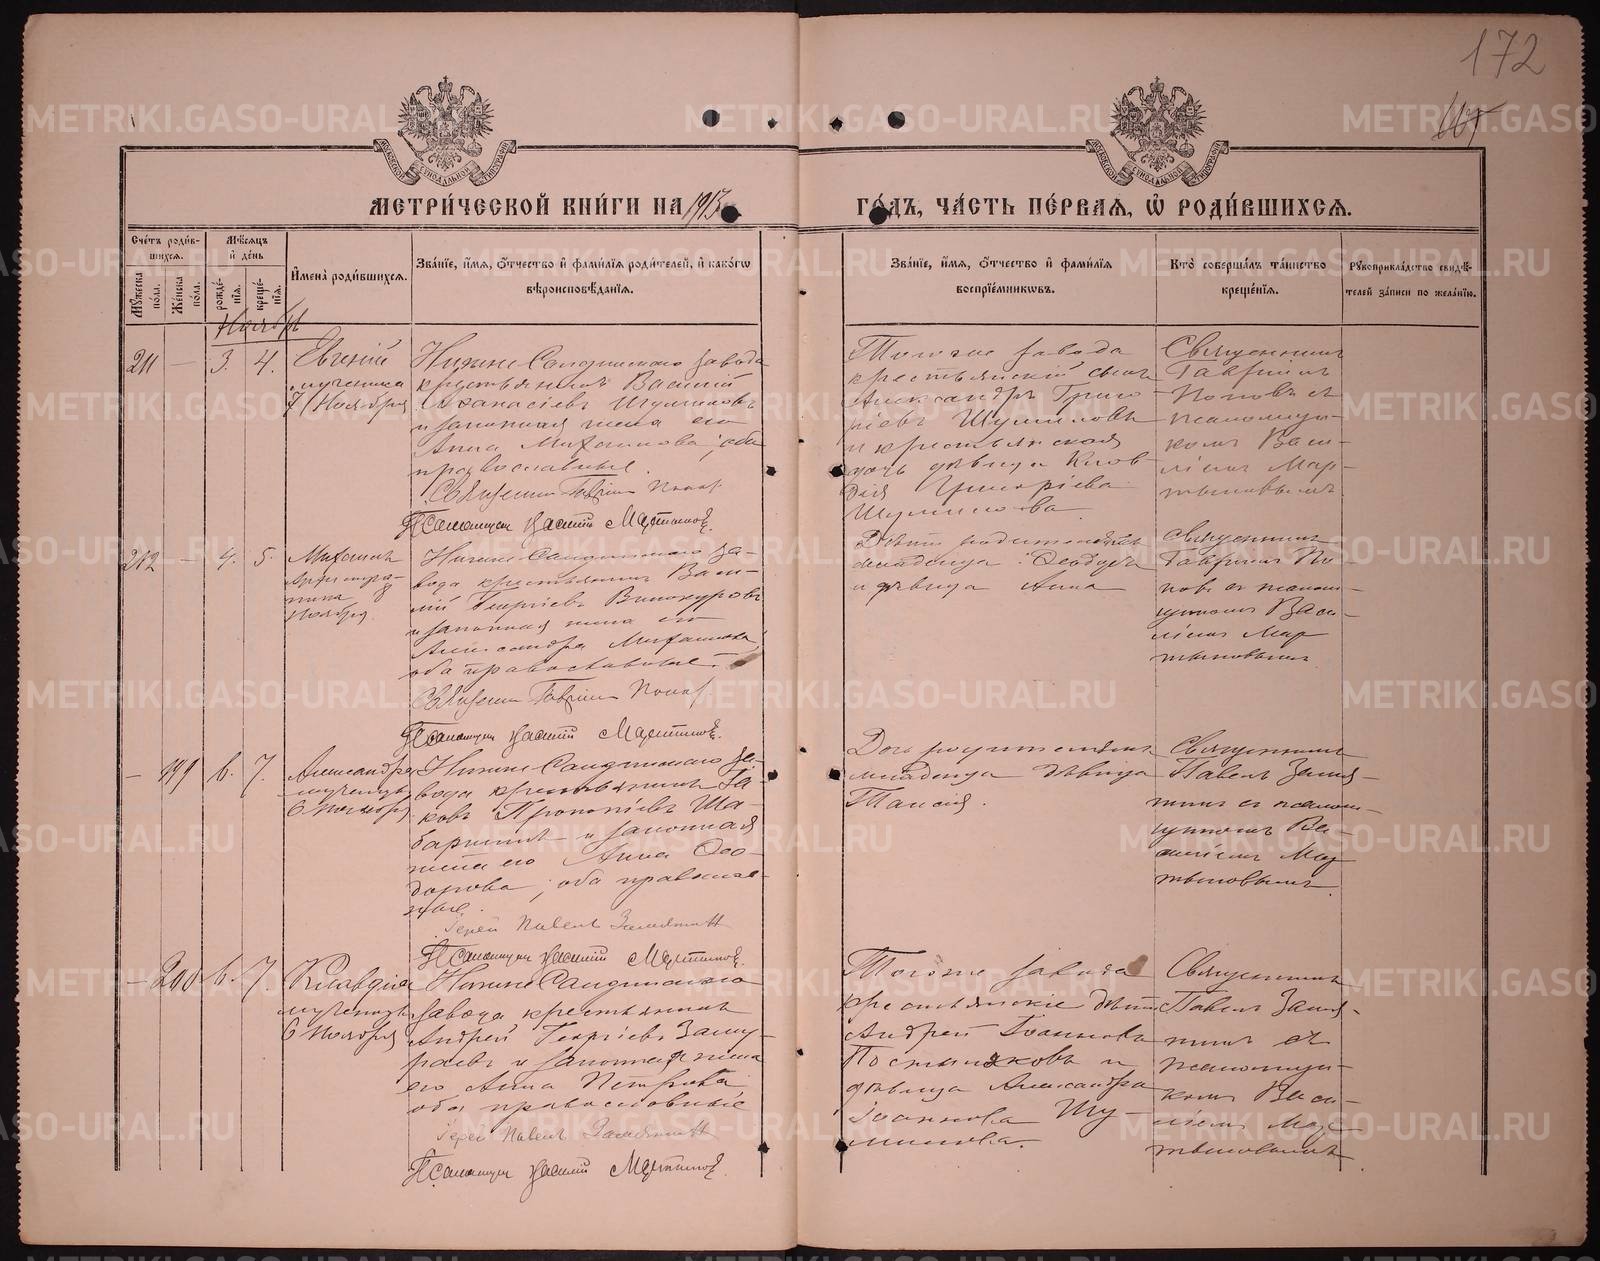 172
МЕТРИ́ЧЕСКОЙ КНИ́ГИ НА 1913
ГО́ДЪ, ЧА́СТЬ ПЕ́РВАЯ, Ѡ҆ РОДИ́ВШИХСЯ.
Сче́тъ роди́в-
шихся.
Мꙋ́жеска по́ла.
Же́нска по́ла.
Мѣ́сяцъ
и҆ де́нь
рожде́-
нїя.
креще́-
нїя.
И҆мена̀ роди́вшихся.
Зва́нїе, и҆́мя, ѻ҆́тчество и҆ фами́лїя роди́телей, и҆ како́гѡ
вѣроисповѣ́данїя.
Зва́нїе, и҆́мя, ѻ҆́тчество и҆ фами́лїя
воспрїе́мникѡвъ.
Кто̀ соверша́лъ та́инство
креще́нїя.
Рꙋкоприкла́дство свидѣ́-
телей за́писи по жела́нїю.
Ноябрь
211 — 3. 4. Евгеній
мученика
7 Ноября
Нижне Салдинскаго завода
крестьянинъ Василій
Аѳанасіевъ Шумиловъ
и законная жена его
Анна ; оба
православные.
Священникъ Гавріилъ Поповъ
Псаломщик Василій Мартынов.
Тогоже завода
крестьянскій сынъ
Александръ Григо-
ріевъ Шумиловъ
и крестьянская
дочь дѣвица Клав
дія Григоріева
Шумилова
Священникъ
Гавріилъ
Поповъ съ
псаломщи-
комъ Васи-
ліемъ Мар-
тыновымъ
212 — 4. 5. Михаилъ
Архистра-
тига 8
Ноября
Нижне Салдинскаго за-
вода крестьянинъ Васи-
лій Георгіевъ Винокуровъ
и законная жена его
Александра Михаилова,
оба православные.
Священникъ Гавріилъ Поповъ
Псаломщик Василій Мартынов.
Дѣти родителей
младенца: Ѳеодуръ
и дѣвица Анна
Священникъ
Гавріилъ По-
повъ съ псалом-
щикомъ Васи-
ліемъ Мар
тыновымъ
— 199 6. 7. Александра
мученицы
6 Ноября
Нижне Салдинскаго за-
вода крестьянинъ Іа-
ковъ Прокопіевъ Ша-
баринъ и законная
жена его Анна Ѳео-
дорова; оба православ-
ные.
Іерей Павелъ Замятинъ
Псаломщик Василій Мартынов.
Дочь родителей
младенца дѣвица
Таисія.
Священникъ
Павелъ Замя-
тинъ съ псалом-
щикомъ Ва-
силіемъ Мар
тыновымъ
— 200 6. 7. Клавдіа
мученицы
6 Ноября
Нижне Салдинскаго
завода крестьянинъ
Андрей Георгіевъ Заму-
раевъ и законная жена
его Анна Петрова
оба православные
Іерей Павелъ Замятинъ
Псаломщик Василій Мартынов.
Тогоже завода
крестьянскіе дѣти
Андрей Іоанновъ
Постниковъ и
дѣвица Александра
Іоаннова Шу-
милова.
Священникъ
Павелъ Замя-
тинъ съ
псаломщи-
комъ Васи-
ліемъ Мар-
тыновымъ
METRIKI.GASO-URAL.RU